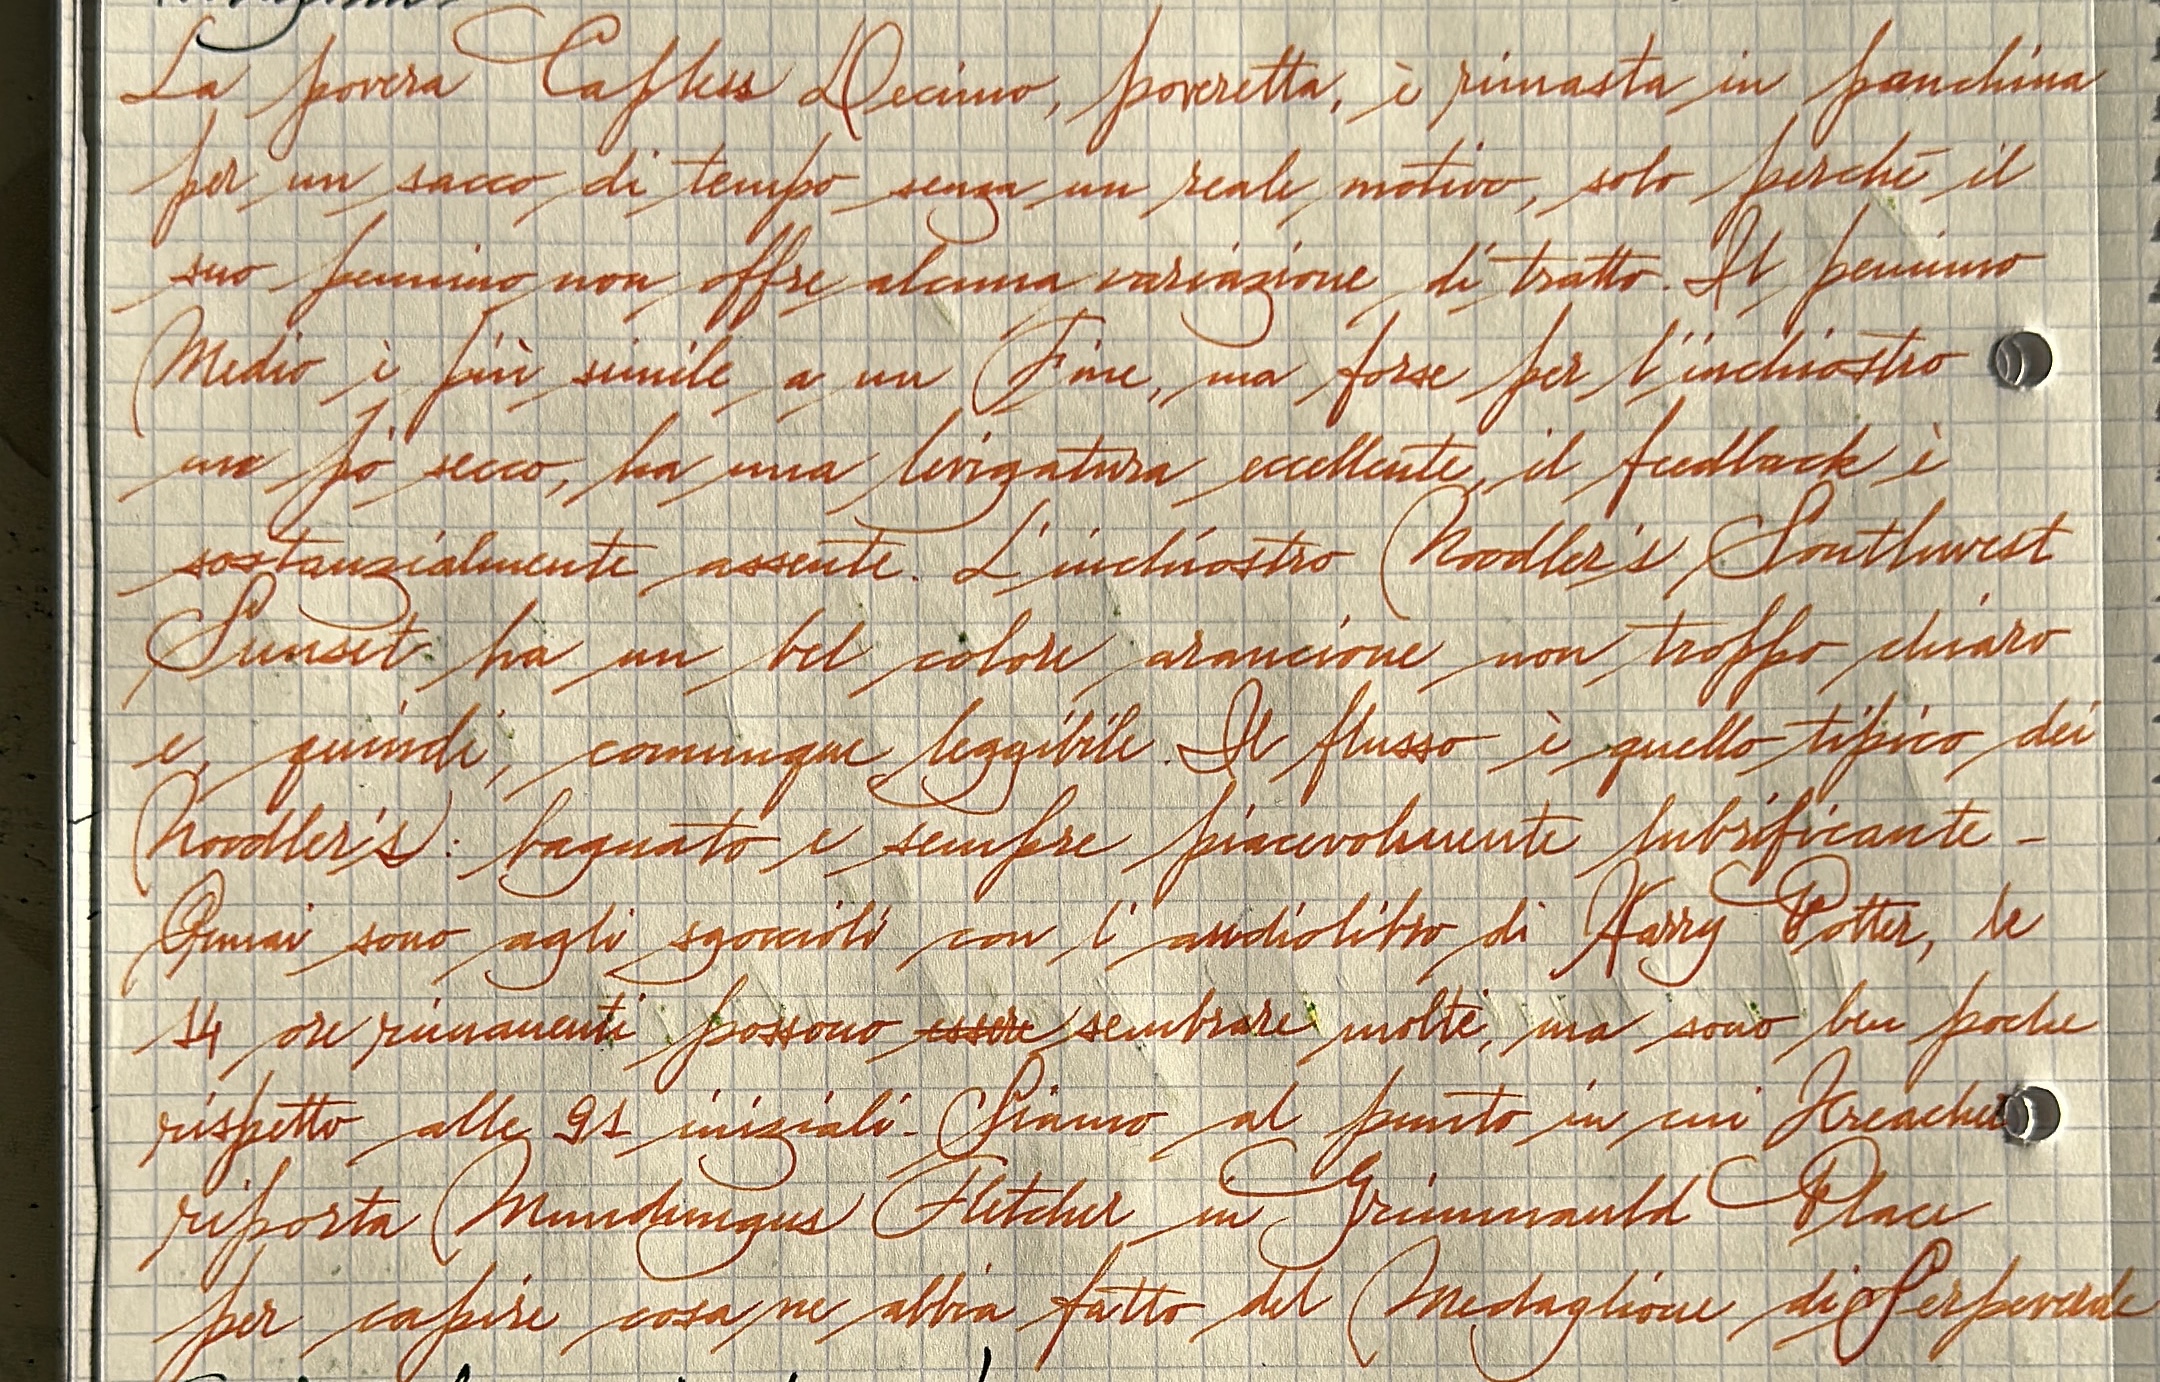 La povera Capless Decimo, poveretta, è rimasta in panchina
per un sacco di tempo senza un reale motivo, solo perché il
suo pennino non offre alcuna variazione di tratto. Il pennino
Medio è più simile a un Fine, ma forse per l'inchiostro
un pò secco, ha una levigatura eccellente, il feedback è
sostanzialmente assente. L'inchiostro Noodler's Southwest
Sunset ha un bel colore arancione non troppo chiaro
e, quindi, comunque leggibile. Il flusso è quello tipico dei
Noodler's: bagnato e sempre piacevolmente lubrificante.
Ormai sono agli sgoccioli con l'audiolibro di Harry Potter, le
14 ore rimanenti possono essere sembrare molte, ma sono ben poche
rispetto alle 91 iniziali. Siamo al punto in cui Kreacher
riporta Mundungus Fletcher in Grimmauld Place
per capire cosa ne abbia fatto del Medaglione di Serpeverde